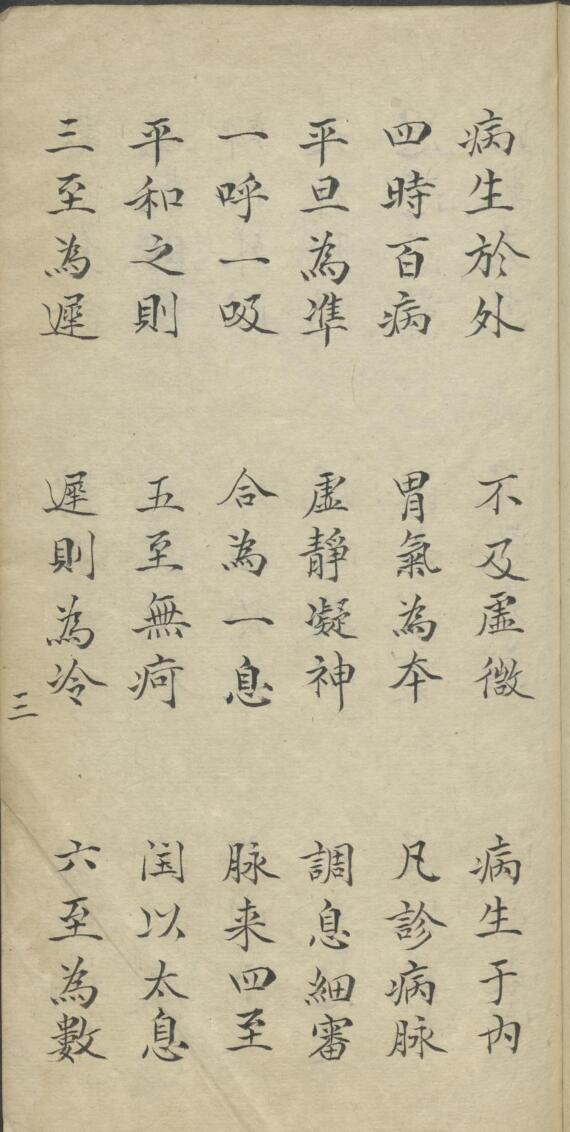 病生於外　不及虛微　病生于内
四時百病　胃氣為本　凡診病脉
平旦為準　虛靜凝神　調息細審
一呼一吸　合為一息　脉来四至
平和之則　五至無疴　閏以太息
三至為遲　遲則為冷　六至為數
三